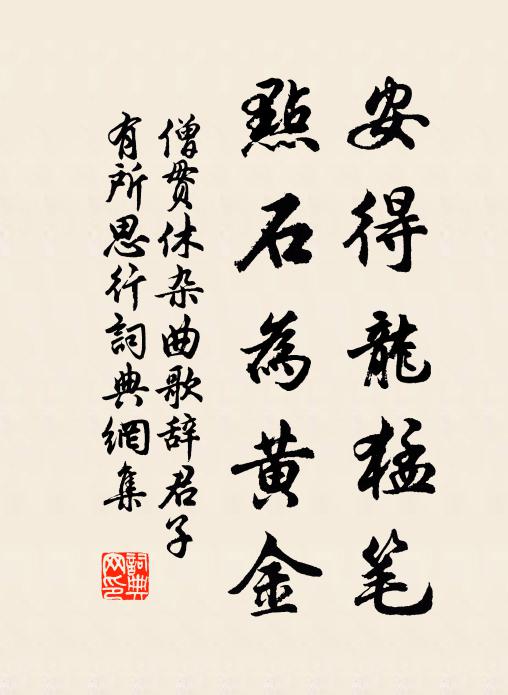 安得龍猛笔
點石為黄金
僧贯休杂曲歌辞君子
有所思行詞典網集
詞典
网印